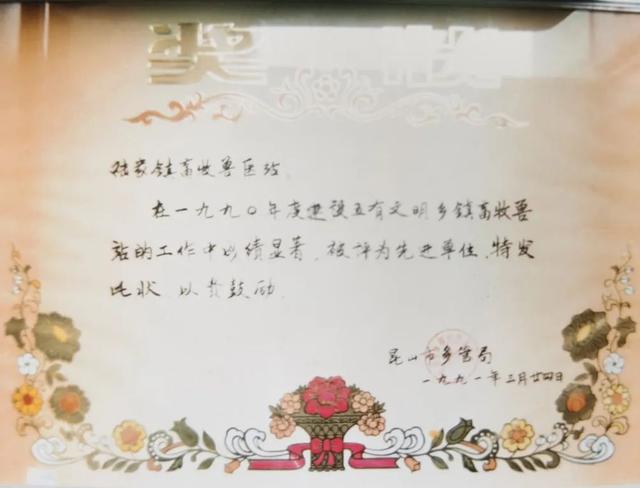 奖状
陆家镇畜牧兽医站
在一九九〇年度建设五有文明乡镇畜牧兽
站的工作中成绩显著，被评为先进单位，特发
此状，以资鼓励。
昆山市多管局
一九九一年三月廿四日